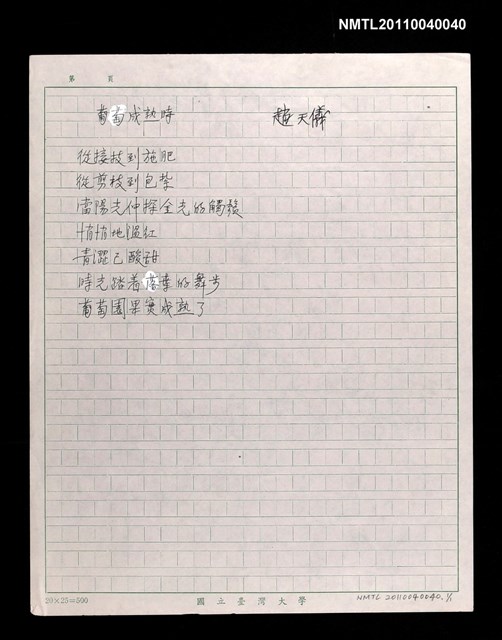 NMTL20110040040
第 頁
葡萄成熟時 趙天儀
從接枝到施肥
從剪枝到包紮
當陽光伸探金光的觸鬚
悄悄地溫紅
青澀已酸甜
時光踏着的舞步
葡萄園果實成熟了
20×25=500
國立臺灣大學
NMTL 20110040040.1/1